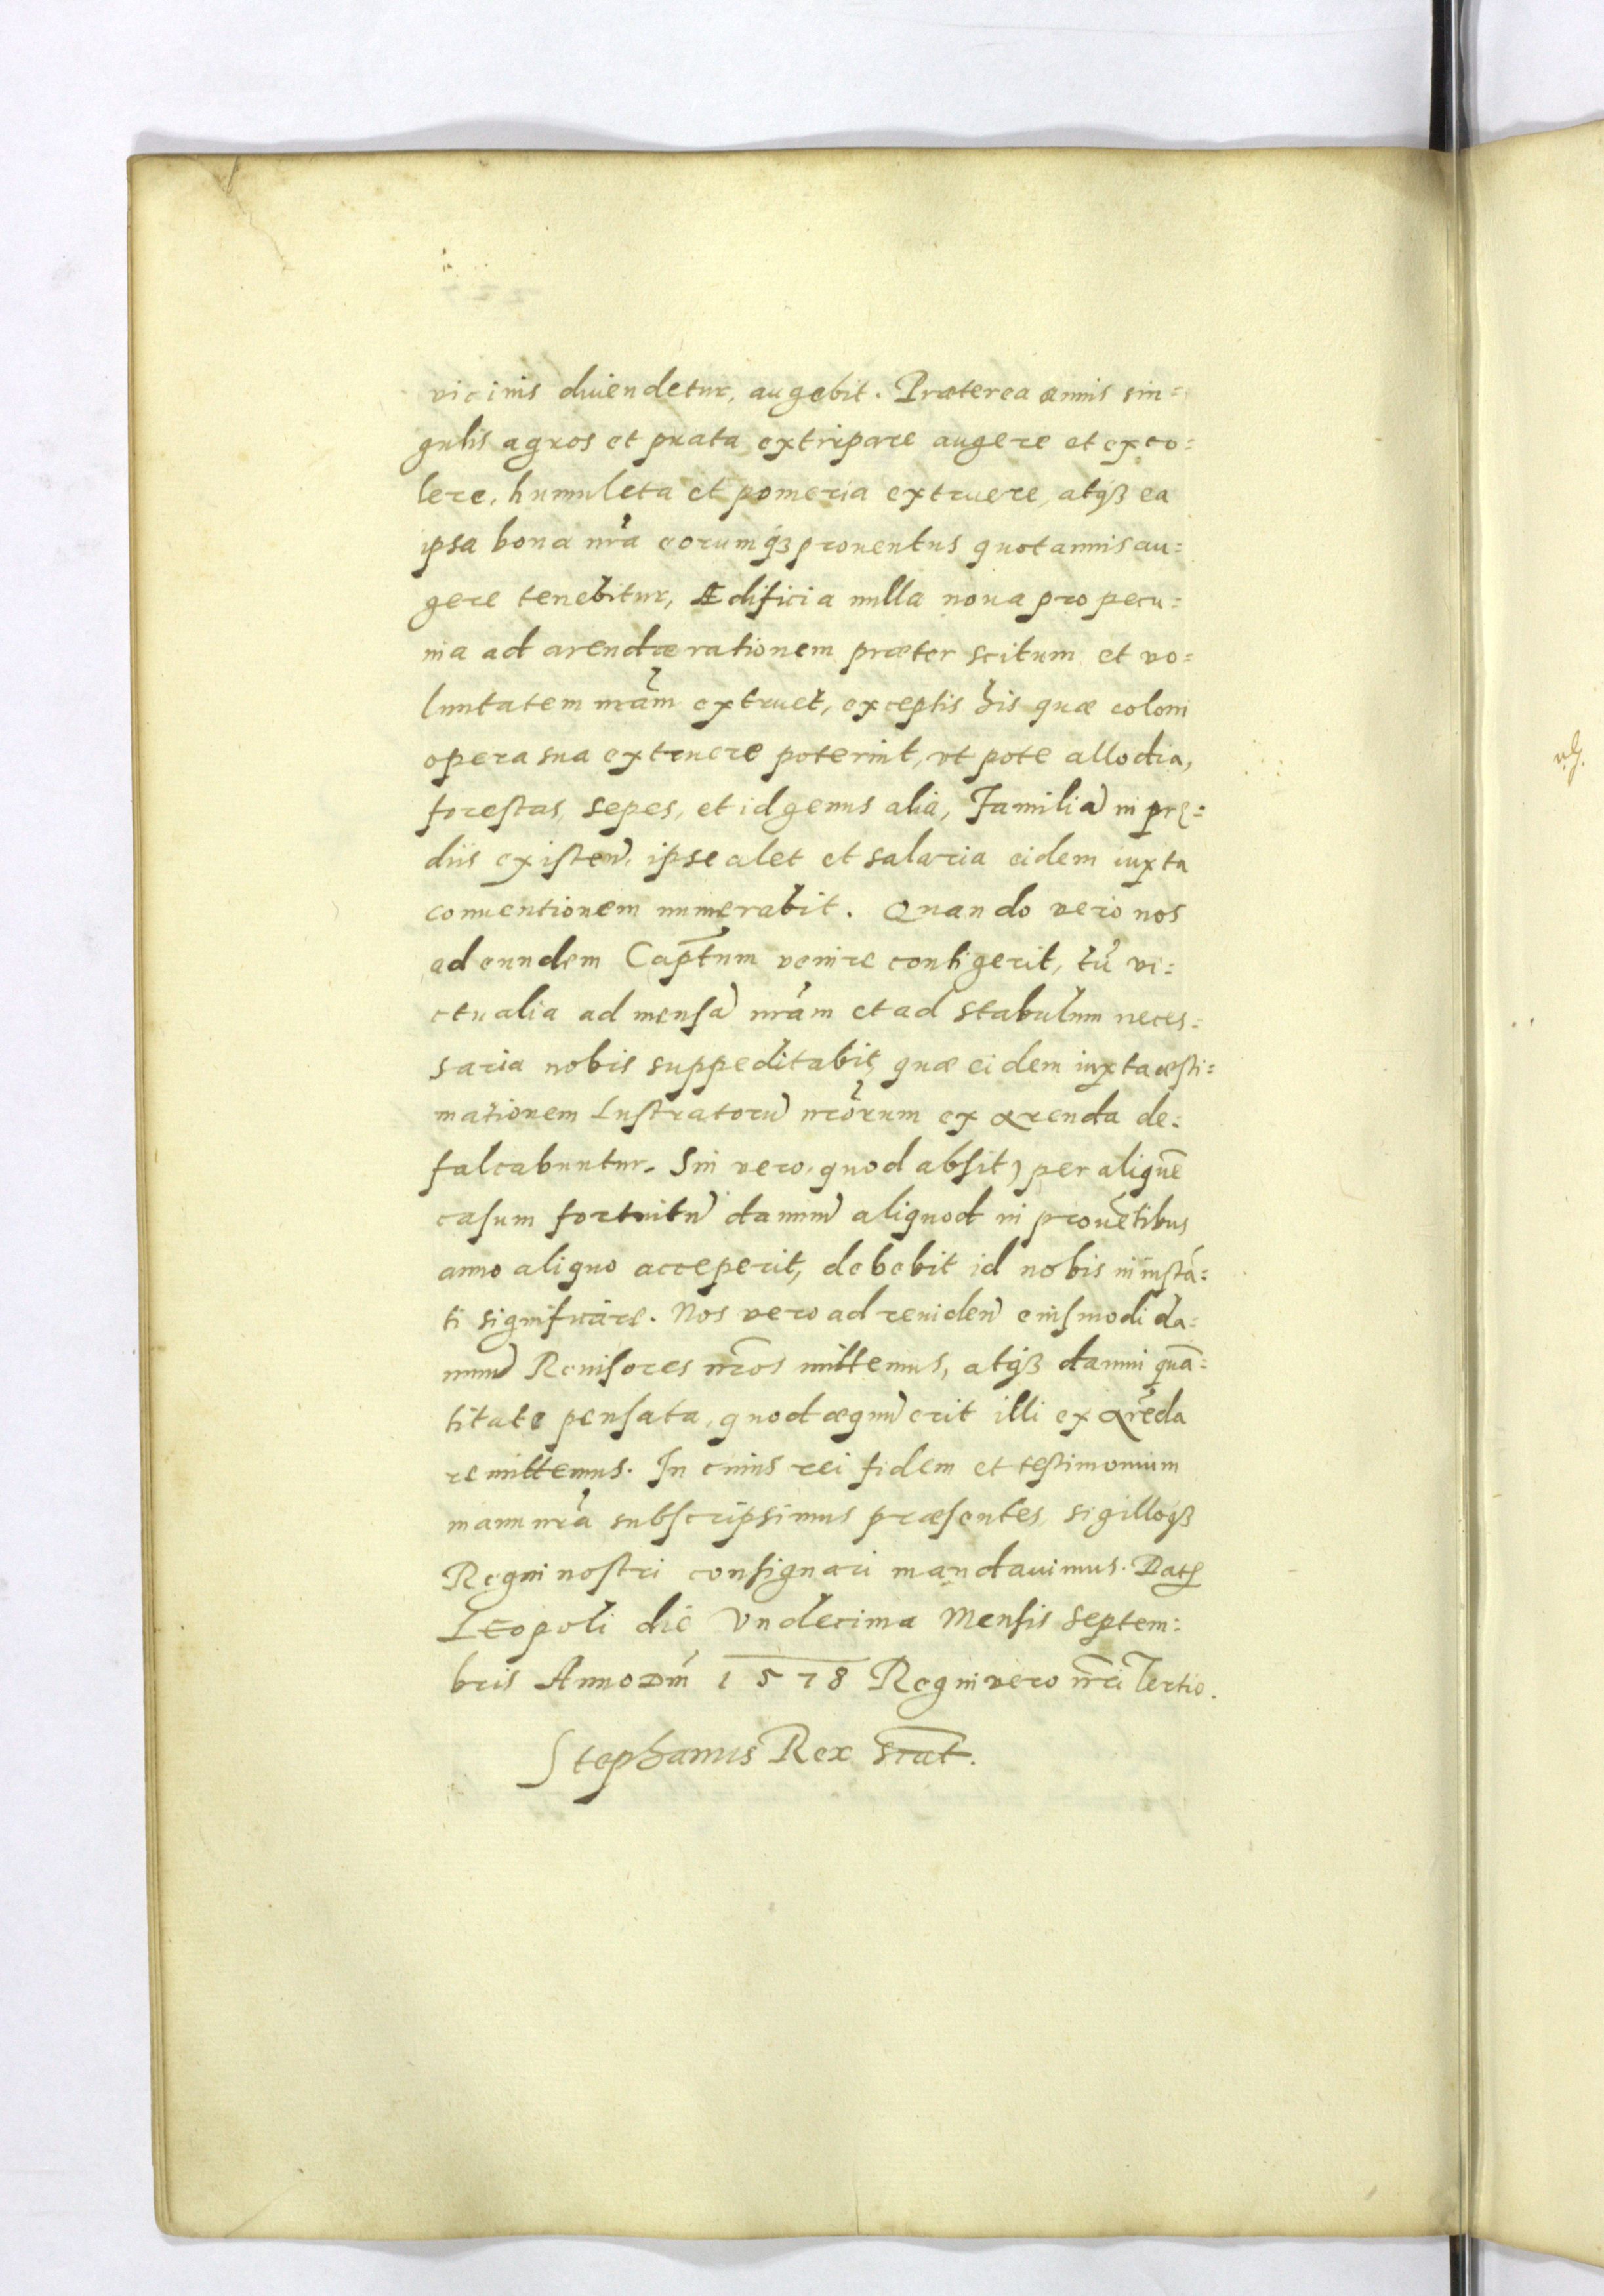 vicinis diuendetur, augebit. Præterea annis sin=
gulis agros et prata extirpare augere et exco=
lere, humuleta et pomeria extruere, atqꝫ ea
ipsa bona nr̃a eorumqꝫ prouentus quotannis au=
gere tenebitur, Ædificia nulla noua pro pecu=
nia ad arendæ rationem præter scitum et vo=
luntatem nr̃am extruet, exceptis his quæ coloni
opera sua extruere poterint, vt pote allodia,
forestas, sepes, et id genus alia, Familiã in prę=
diis existeñ. ipse alet et salaria eidem iuxta
conuentionem numerabit. Quando vero nos
ad eundem Cap̃tum venire contigerit, tũ vi=
ctualia ad mensã nr̃am et ad stabulum neces=
saria nobis suppeditabit, quæ eidem iuxta æsti=
mationem Lustratorũ nr̃orum ex arenda de=
falcabuntur. Sin vero, quod absit) per aliquẽ
casum fortuitũ damnũ aliquod in prouẽtibus
anno aliquo acceperit, debebit id nobis in instã=
ti significare. Nos vero ad reuideñ eiusmodi da=
mnũ Reuisores nr̃os mittemus, atqꝫ damni quã=
titate pensata, quod æquũ erit illi ex arẽda
remittemus. In cuius rei fidem et testimonium
manu nr̃a subscripsimus præsentes, sigilloqꝫ
Regni nostri consignari mandauimus. Datꝭ
Leopoli die Vndecima Mensis Septem=
bris Anno Dñi 1578 Regni vero nr̃i Tertio.
Stephanus Rex sr̃at.
v.g.